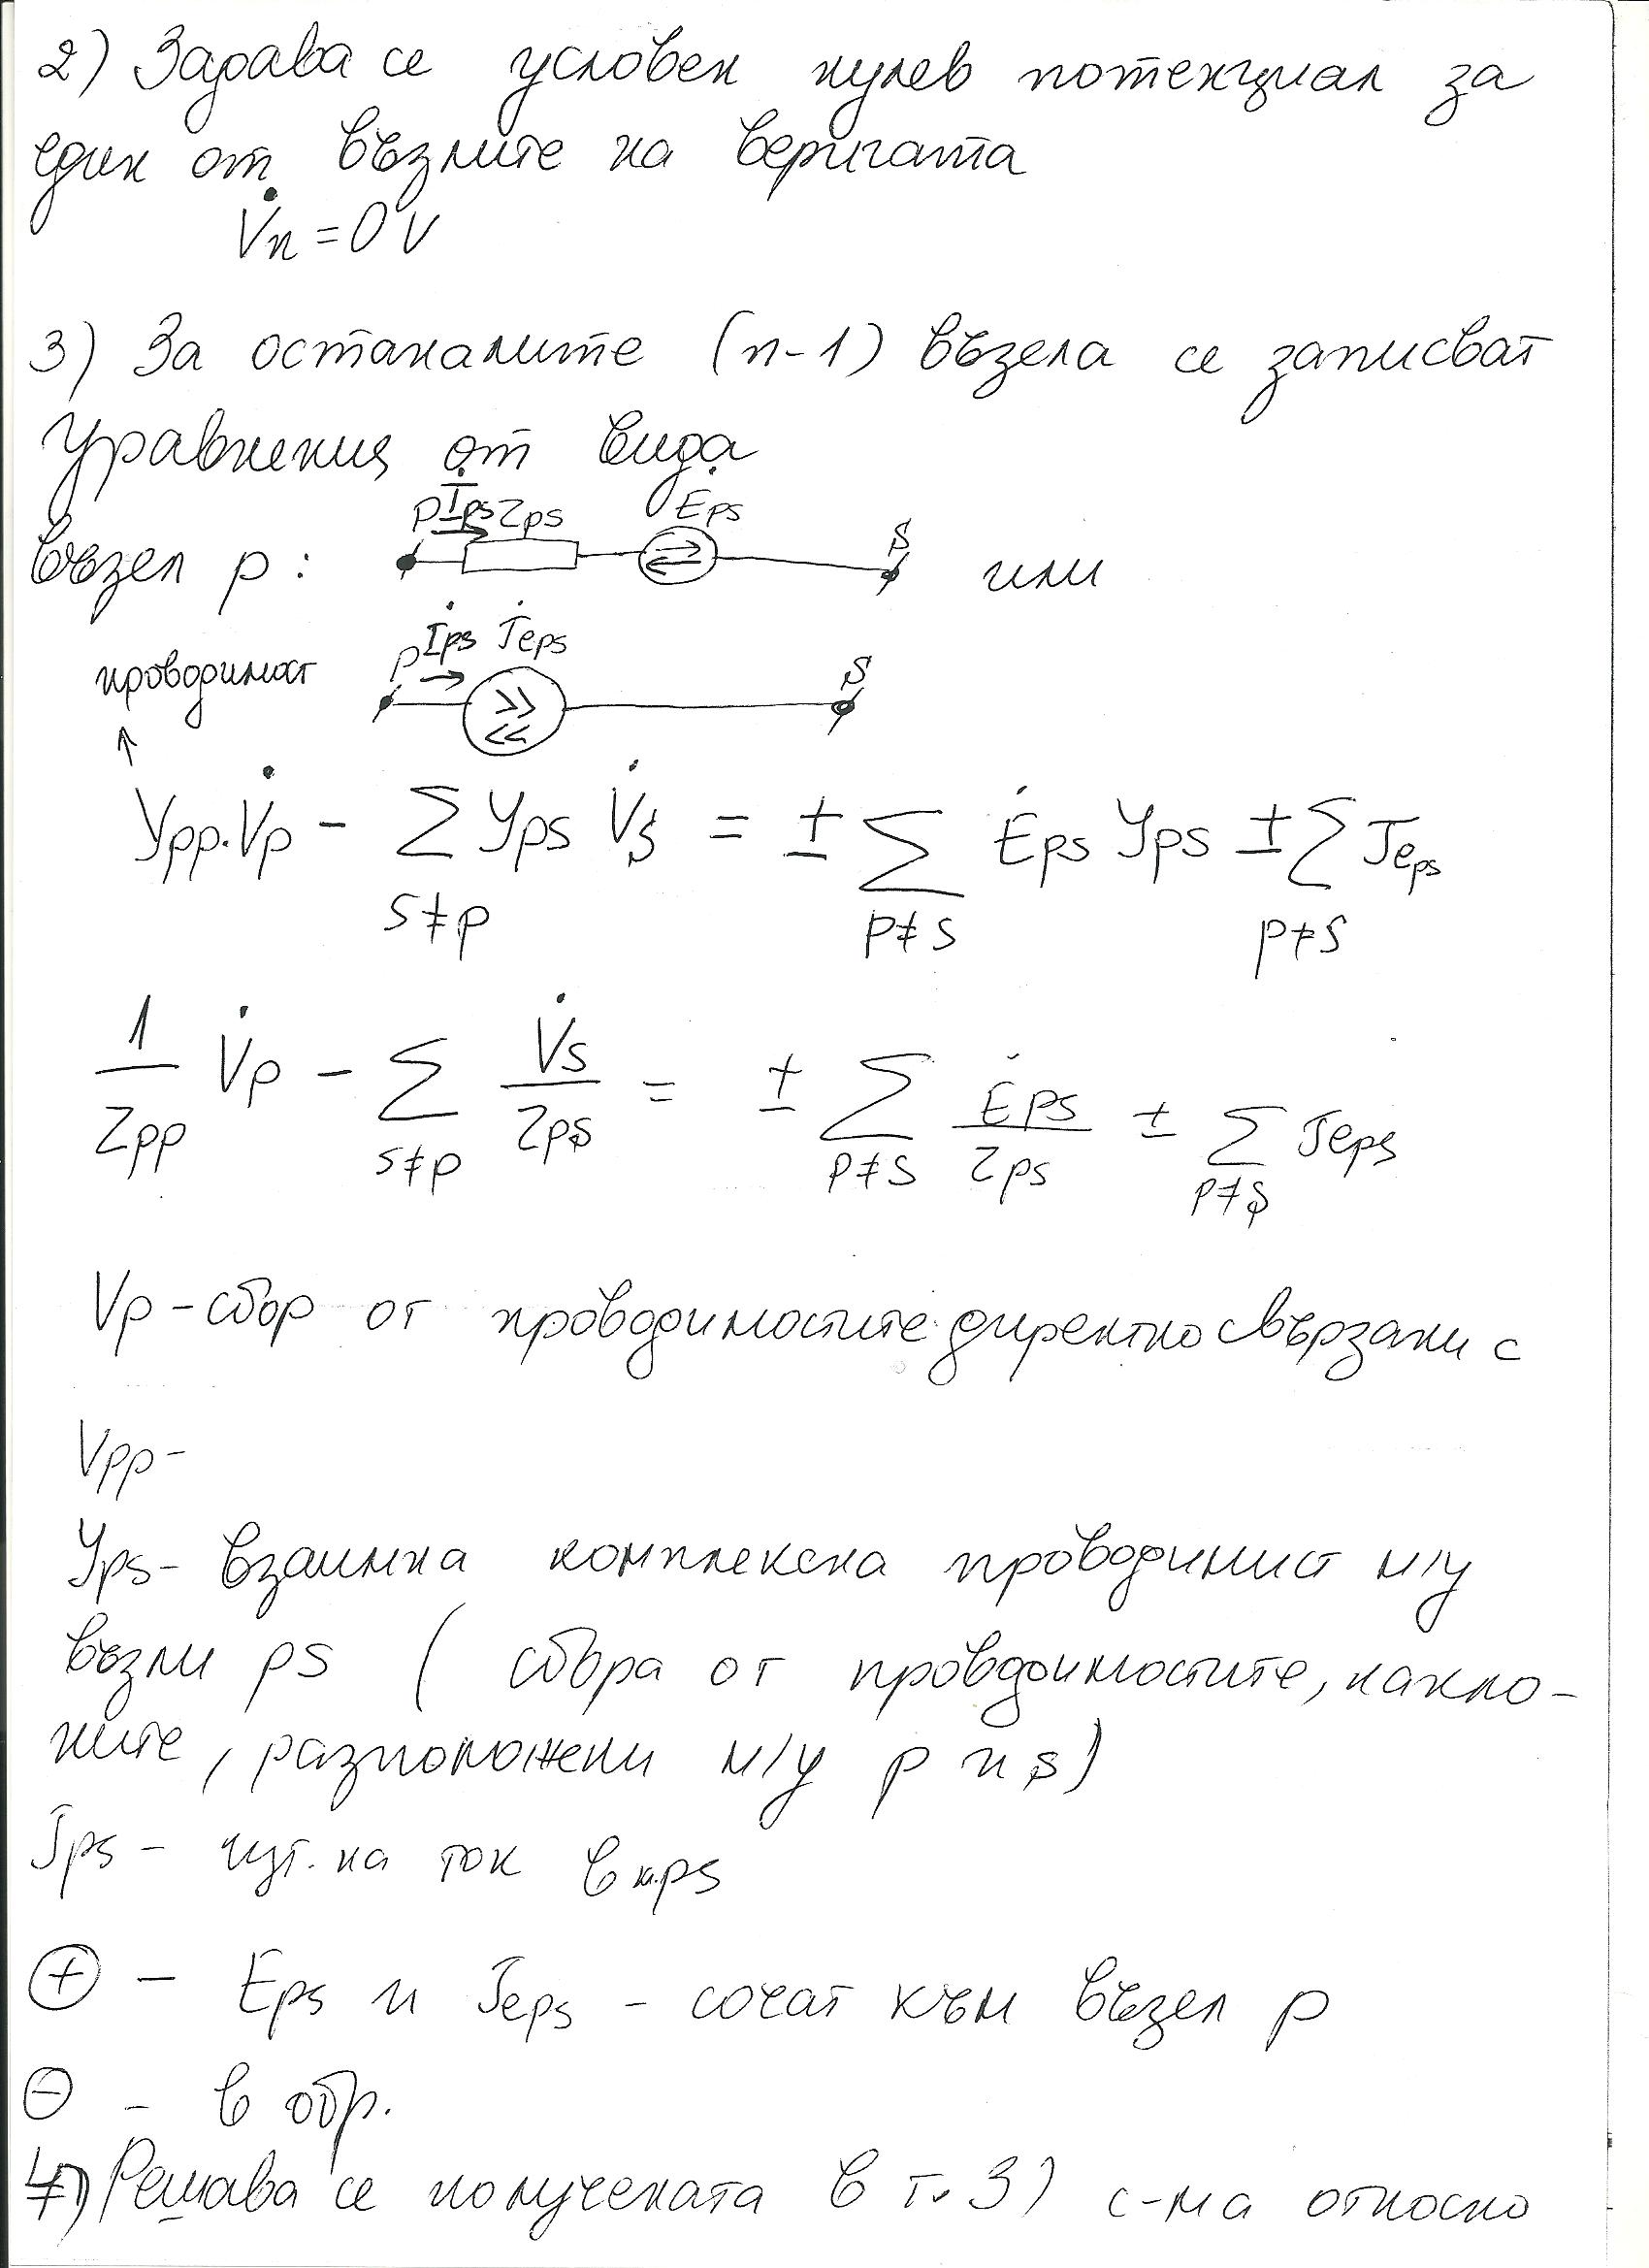 2) Задава се условен нулев потенциал за
един от възлите на веригата
V̇n = 0 V
3) За останалите (n-1) възела се записват
Уравнения от вида
p İps Zps Ėps S
Възел p : или
p İps J̇eps S
проводимост
↑
Ypp.V̇p - ∑ Yps V̇s = ± ∑ Ėps Yps ± ∑ Jeps
s≠p p≠s p≠s
1/Zpp V̇p - ∑ V̇s/Zps = ± ∑ Ėps/Zps ± ∑ Jeps
s≠p p≠s p≠s
Vp - сбор от проводимостите директно свързани с
Vpp -
Yps - взаимна комплексна проводимист м/у
възли ps ( сбора от проводимостите, какло-
ните, разположени м/у p и s)
Jps - изт. на ток в к.ps
⊕ - Eps и Jeps - сочат към възел p
⊖ - в обр.
4) Решава се получената в т. 3) с-ма относно